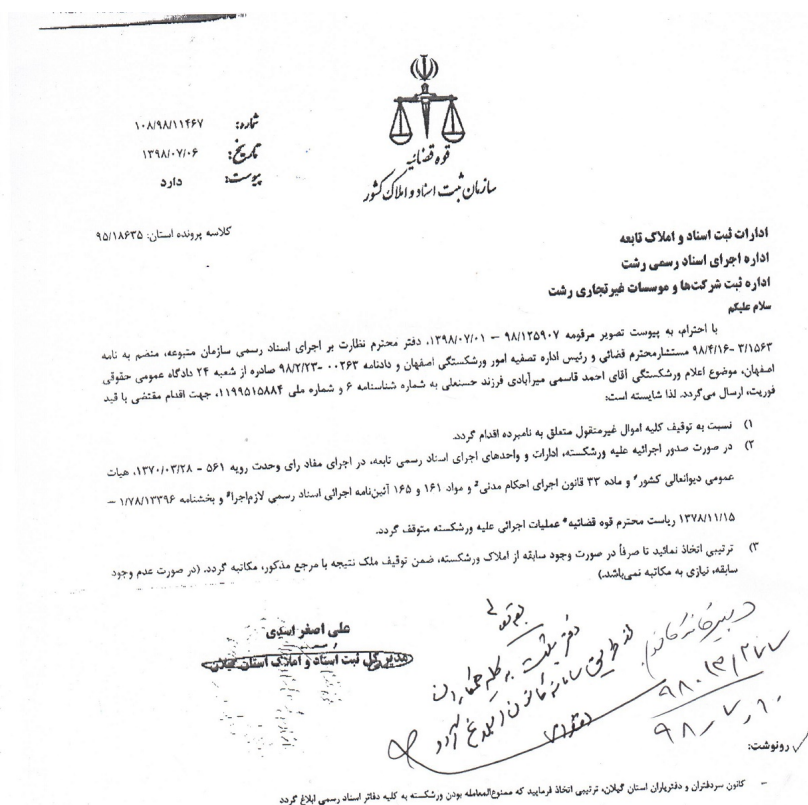 قوه قضائیه
سازمان ثبت اسناد و املاک کشور
شماره: ۱۰۸/۹۸/۱۱۴۶۷
تاریخ: ۱۳۹۸/۰۷/۰۶
پیوست: دارد
کلاسه پرونده استان: ۹۵/۱۸۶۳۵
ادارات ثبت اسناد و املاک تابعه
اداره اجرای اسناد رسمی رشت
اداره ثبت شرکت‌ها و موسسات غیرتجاری رشت
سلام علیکم
با احترام، به پیوست تصویر مرقومه ۹۸/۱۲۵۹۰۷ – ۱۳۹۸/۰۷/۰۱، دفتر محترم نظارت بر اجرای اسناد رسمی سازمان متبوعه، منضم به نامه
۳/۱۵۶۳ -۹۸/۴/۱۶ مستشارمحترم قضائی و رئیس اداره تصفیه امور ورشکستگی اصفهان و دادنامه ۰۰۲۶۳ -۹۸/۲/۲۳ صادره از شعبه ۲۴ دادگاه عمومی حقوقی
اصفهان، موضوع اعلام ورشکستگی آقای احمد قاسمی میرآبادی فرزند حسنعلی به شماره شناسنامه ۶ و شماره ملی ۱۱۹۹۵۱۵۸۸۴، جهت اقدام مقتضی با قید
فوریت، ارسال می‌گردد. لذا شایسته است:
۱) نسبت به توقیف کلیه اموال غیرمنقول متعلق به نامبرده اقدام گردد.
۲) در صورت صدور اجرائیه علیه ورشکسته، ادارات و واحدهای اجرای اسناد رسمی تابعه، در اجرای مفاد رای وحدت رویه ۵۶۱ - ۱۳۷۰/۰۳/۲۸، هیات
عمومی دیوانعالی کشور و ماده ۳۳ قانون اجرای احکام مدنی و مواد ۱۶۱ و ۱۶۵ آئین‌نامه اجرائی اسناد رسمی لازم‌اجرا و بخشنامه ۱/۷۸/۱۳۳۹۶ –
۱۳۷۸/۱۱/۱۵ ریاست محترم قوه قضائیه عملیات اجرائی علیه ورشکسته متوقف گردد.
۳) ترتیبی اتخاذ نمائید تا صرفاً در صورت وجود سابقه از املاک ورشکسته، ضمن توقیف ملک نتیجه با مرجع مذکور، مکاتبه گردد. (در صورت عدم وجود
سابقه، نیازی به مکاتبه نمی‌باشد.)
علی اصغر اسدی
مدیر کل ثبت اسناد و املاک استان گیلان
رونوشت:
- کانون سردفتران و دفتریاران استان گیلان، ترتیبی اتخاذ فرمایید که ممنوع‌المعامله بودن ورشکسته به کلیه دفاتر اسناد رسمی ابلاغ گردد